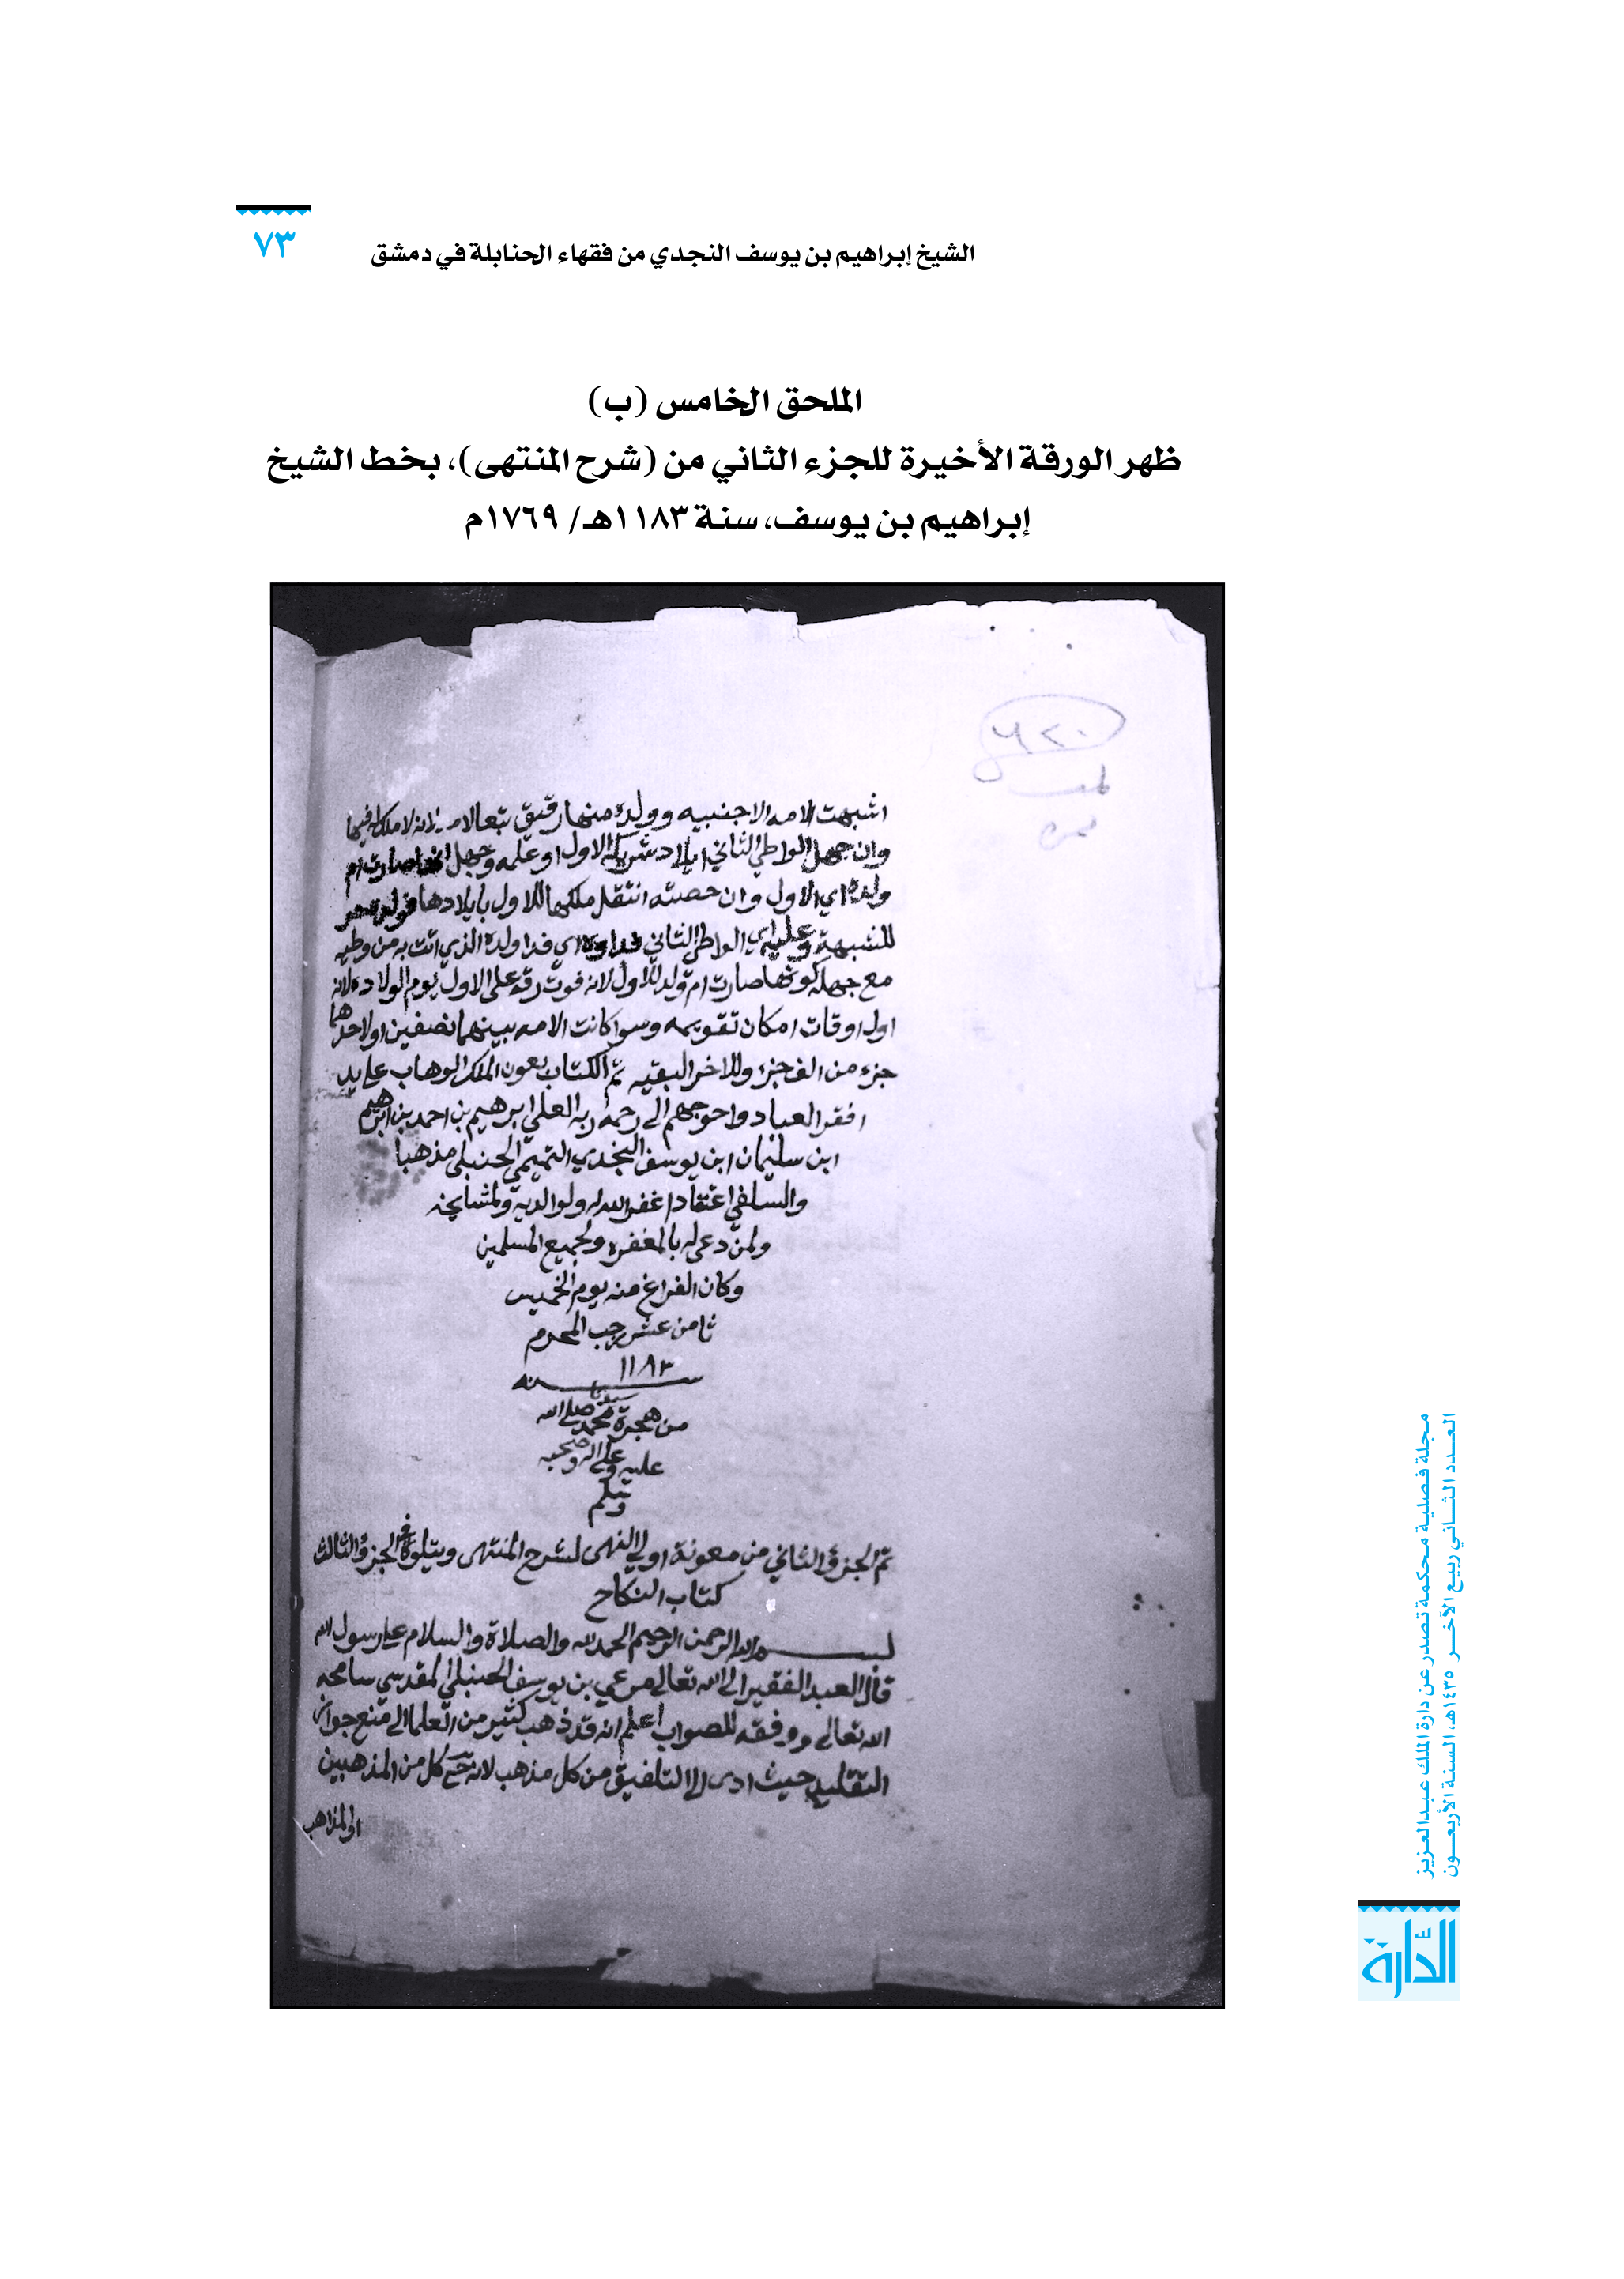 ٧٣
الشيخ إبراهيم بن يوسف النجدي من فقهاء الحنابلة في دمشق
الملحق الخامس (ب)
ظهر الورقة الأخيرة للجزء الثاني من (شرح المنتهى)، بخط الشيخ
إبراهيم بن يوسف، سنة ١١٨٣هـ/ ١٧٦٩م
اشبهت الامه الاجنبيه وولده منها رقيق تبعا لامه لانه لا ملك له فيها
وان جهل الواطي الثاني ايلاد شريكه الاول او علمه وجهل انها صارت ام
ولده اي الاول وان حصته انتقل ملكها للاول بايلادها فولده حر
للشبهة وعليه اي الواطي الثاني فداوه اي فدا ولده الذي اتت به من وطيه
مع جهله كونها صارت ام ولد للاول لانه فوت رقه على الاول يوم الولاده لانه
اول اوقات امكان تقويمه وسوا كانت الامه بينهما نصفين او لاحدهما
جزء من الف جزء وللاخر البقيه تم الكتاب بعون الملك الوهاب على يد
افقر العباد واحوجهم الى رحمة ربه العلي ابرهيم بن احمد بن ابرهيم
ابن سليمان ابن يوسف النجدي التميمي الحنبلي مذهبا
والسلفي اعتقادا غفر الله له ولوالديه ولمشايخه
ولمن دعى له بالمغفره ولجميع المسلمين
وكان الفراغ منه يوم الخميس
ثامن عشر رجب المحرم
١١٨٣
سنه
من هجرة سيدنا محمد صلى الله
عليه وعلى اله وصحبه
وسلم
تم الجزؤ الثاني من معونة اولي النهى لشرح المنتهى ويتلوه في الجزؤ الثالث
كتاب النكاح
بسم الله الرحمن الرحيم الحمد لله والصلاة والسلام على رسول الله
قال العبد الفقير الى الله تعالى مرعي بن يوسف الحنبلي المقدسي سامحه
الله تعالى ووفقه للصواب اعلم انه قد ذهب كثير من العلما الى منع جواز
التقليد حيث ادى الى التلفيق من كل مذهب لانه ح كل من المذهبين
او المذاهب
٦٢٠
مجلة فصلية محكمة تصدر عن دارة الملك عبدالعزيز
العدد الثاني ربيع الآخر ١٤٣٥هـ، السنة الأربعون
الدارة